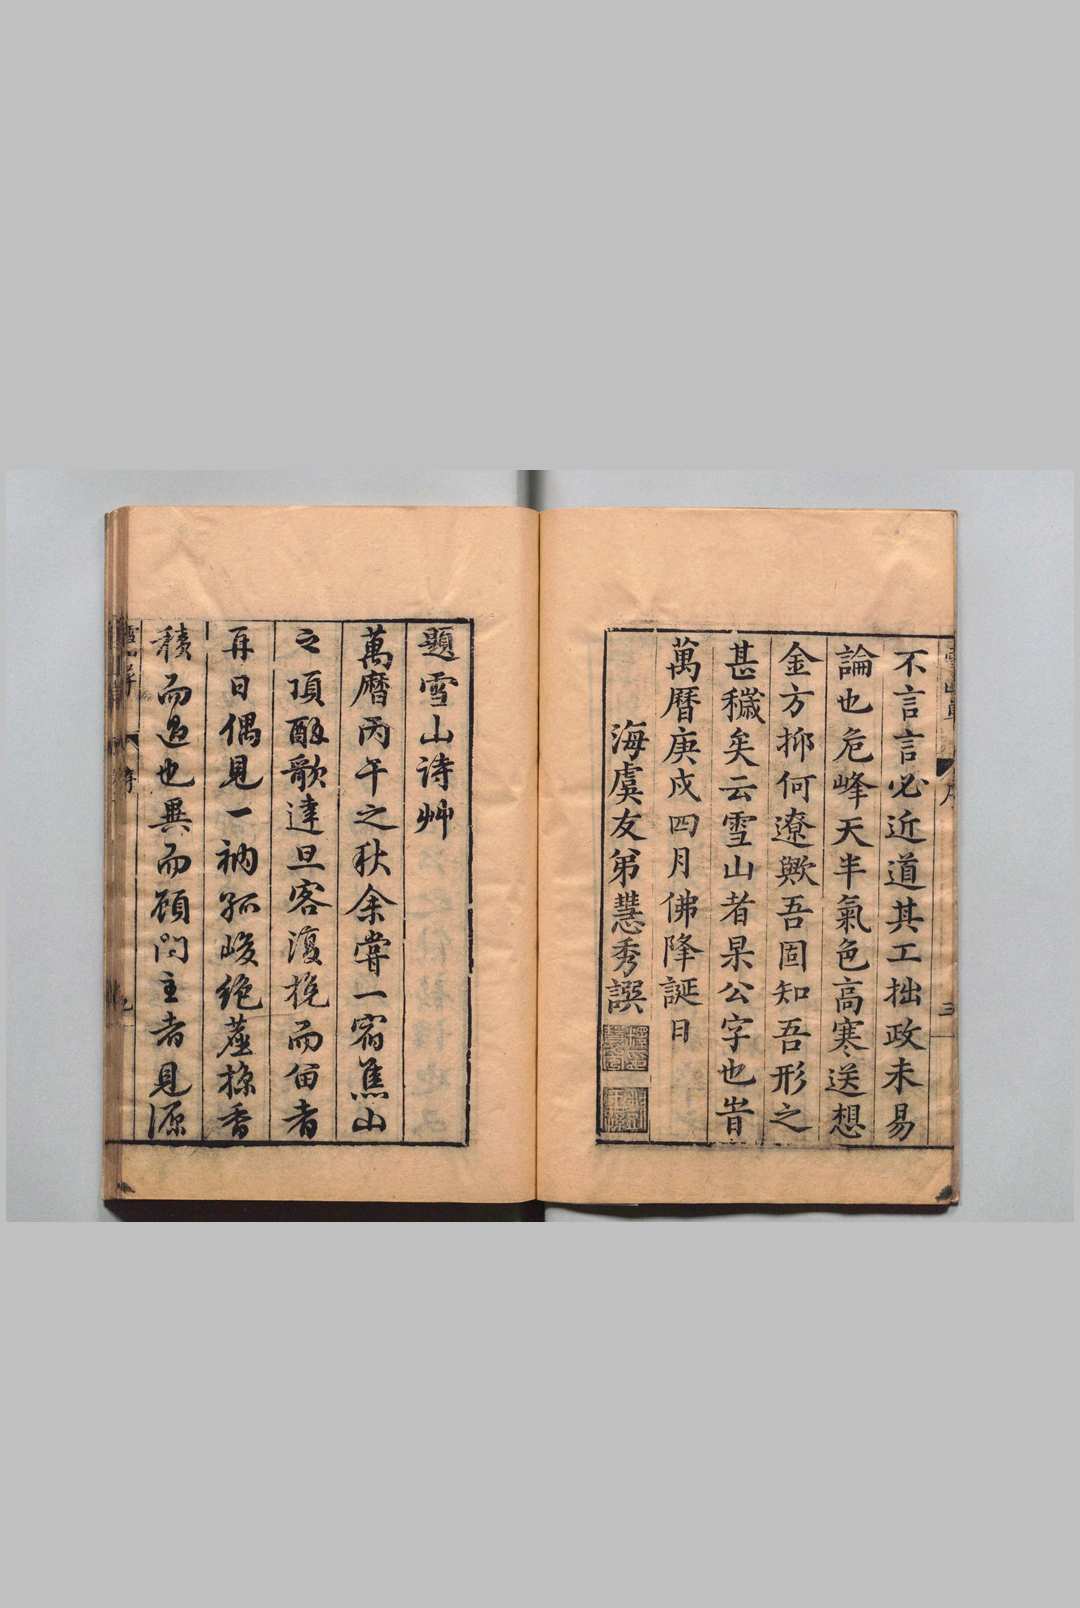 不言言必近道其工拙政未易
論也危峰天半氣色高寒送想
金方抑何遼歟吾固知吾形之
甚穢矣云雪山者杲公字也旹
萬曆庚戌四月佛降誕日
海虞友弟慧秀譔
題雪山詩艸
萬曆丙午之秋余嘗一宿焦山
之頂酣歌達旦客復挽而留者
再日偶見一衲孤峻絕塵撩香
積而過也異而顧問主者見源